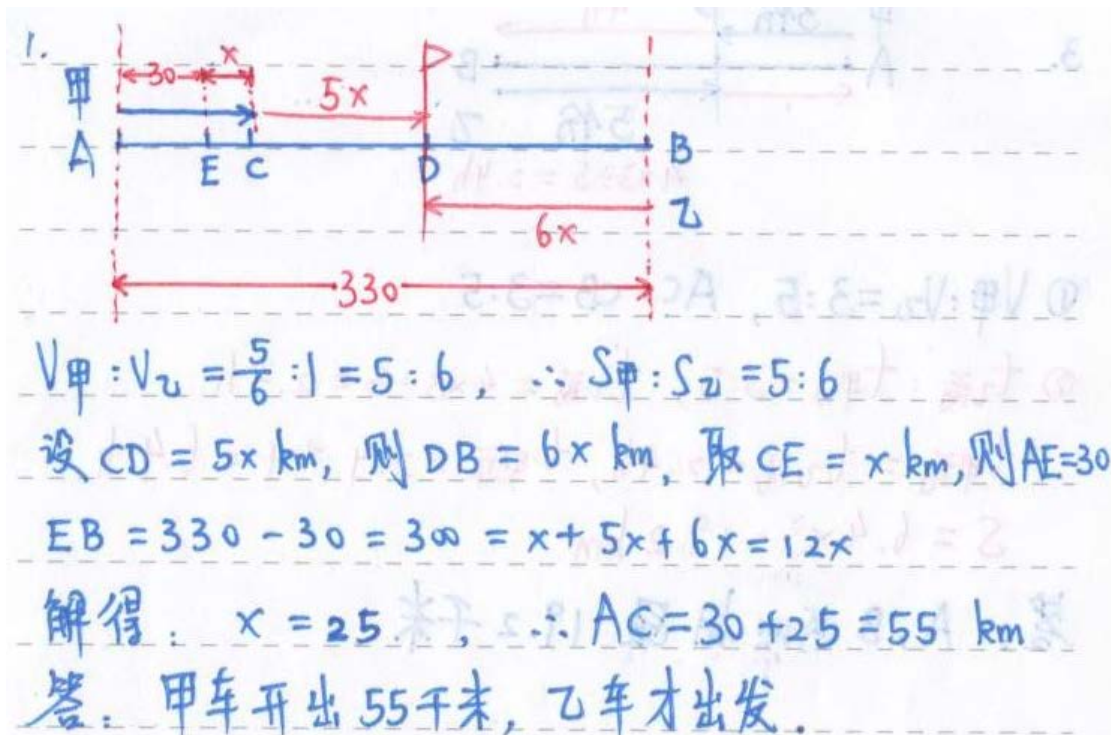 1.
甲 30 x 5x
A E C D B
6x 乙
330
V甲:V乙 = 5/6 :1 = 5:6, ∴ S甲:S乙 = 5:6
设 CD = 5x km, 则 DB = 6x km, 取 CE = x km, 则 AE=30
EB = 330 - 30 = 300 = x + 5x + 6x = 12x
解得: x = 25, ∴ AC = 30 + 25 = 55 km
答: 甲车开出 55千米, 乙车才出发.